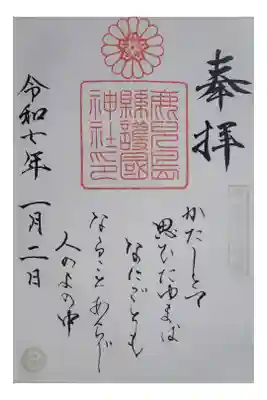 奉拝
鹿兒島
縣護國
神社印
かたしとて
思ひたゆまば
なにごとも
なることあらじ
人のよの中
令和七年 一月二日